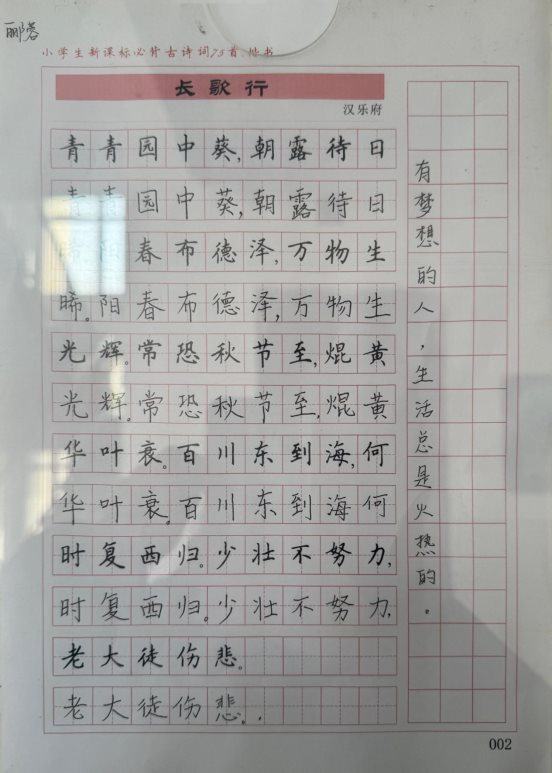 郦蓉
小学生新课标必背古诗词75首 楷书
长歌行
汉乐府
青青园中葵,朝露待日
青青园中葵,朝露待日
晞。阳春布德泽,万物生
晞。阳春布德泽,万物生
光辉。常恐秋节至,焜黄
光辉。常恐秋节至,焜黄
华叶衰。百川东到海,何
华叶衰。百川东到海何
时复西归。少壮不努力,
时复西归。少壮不努力,
老大徒伤悲。
老大徒伤悲。
有梦想的人,生活总是火热的。
002